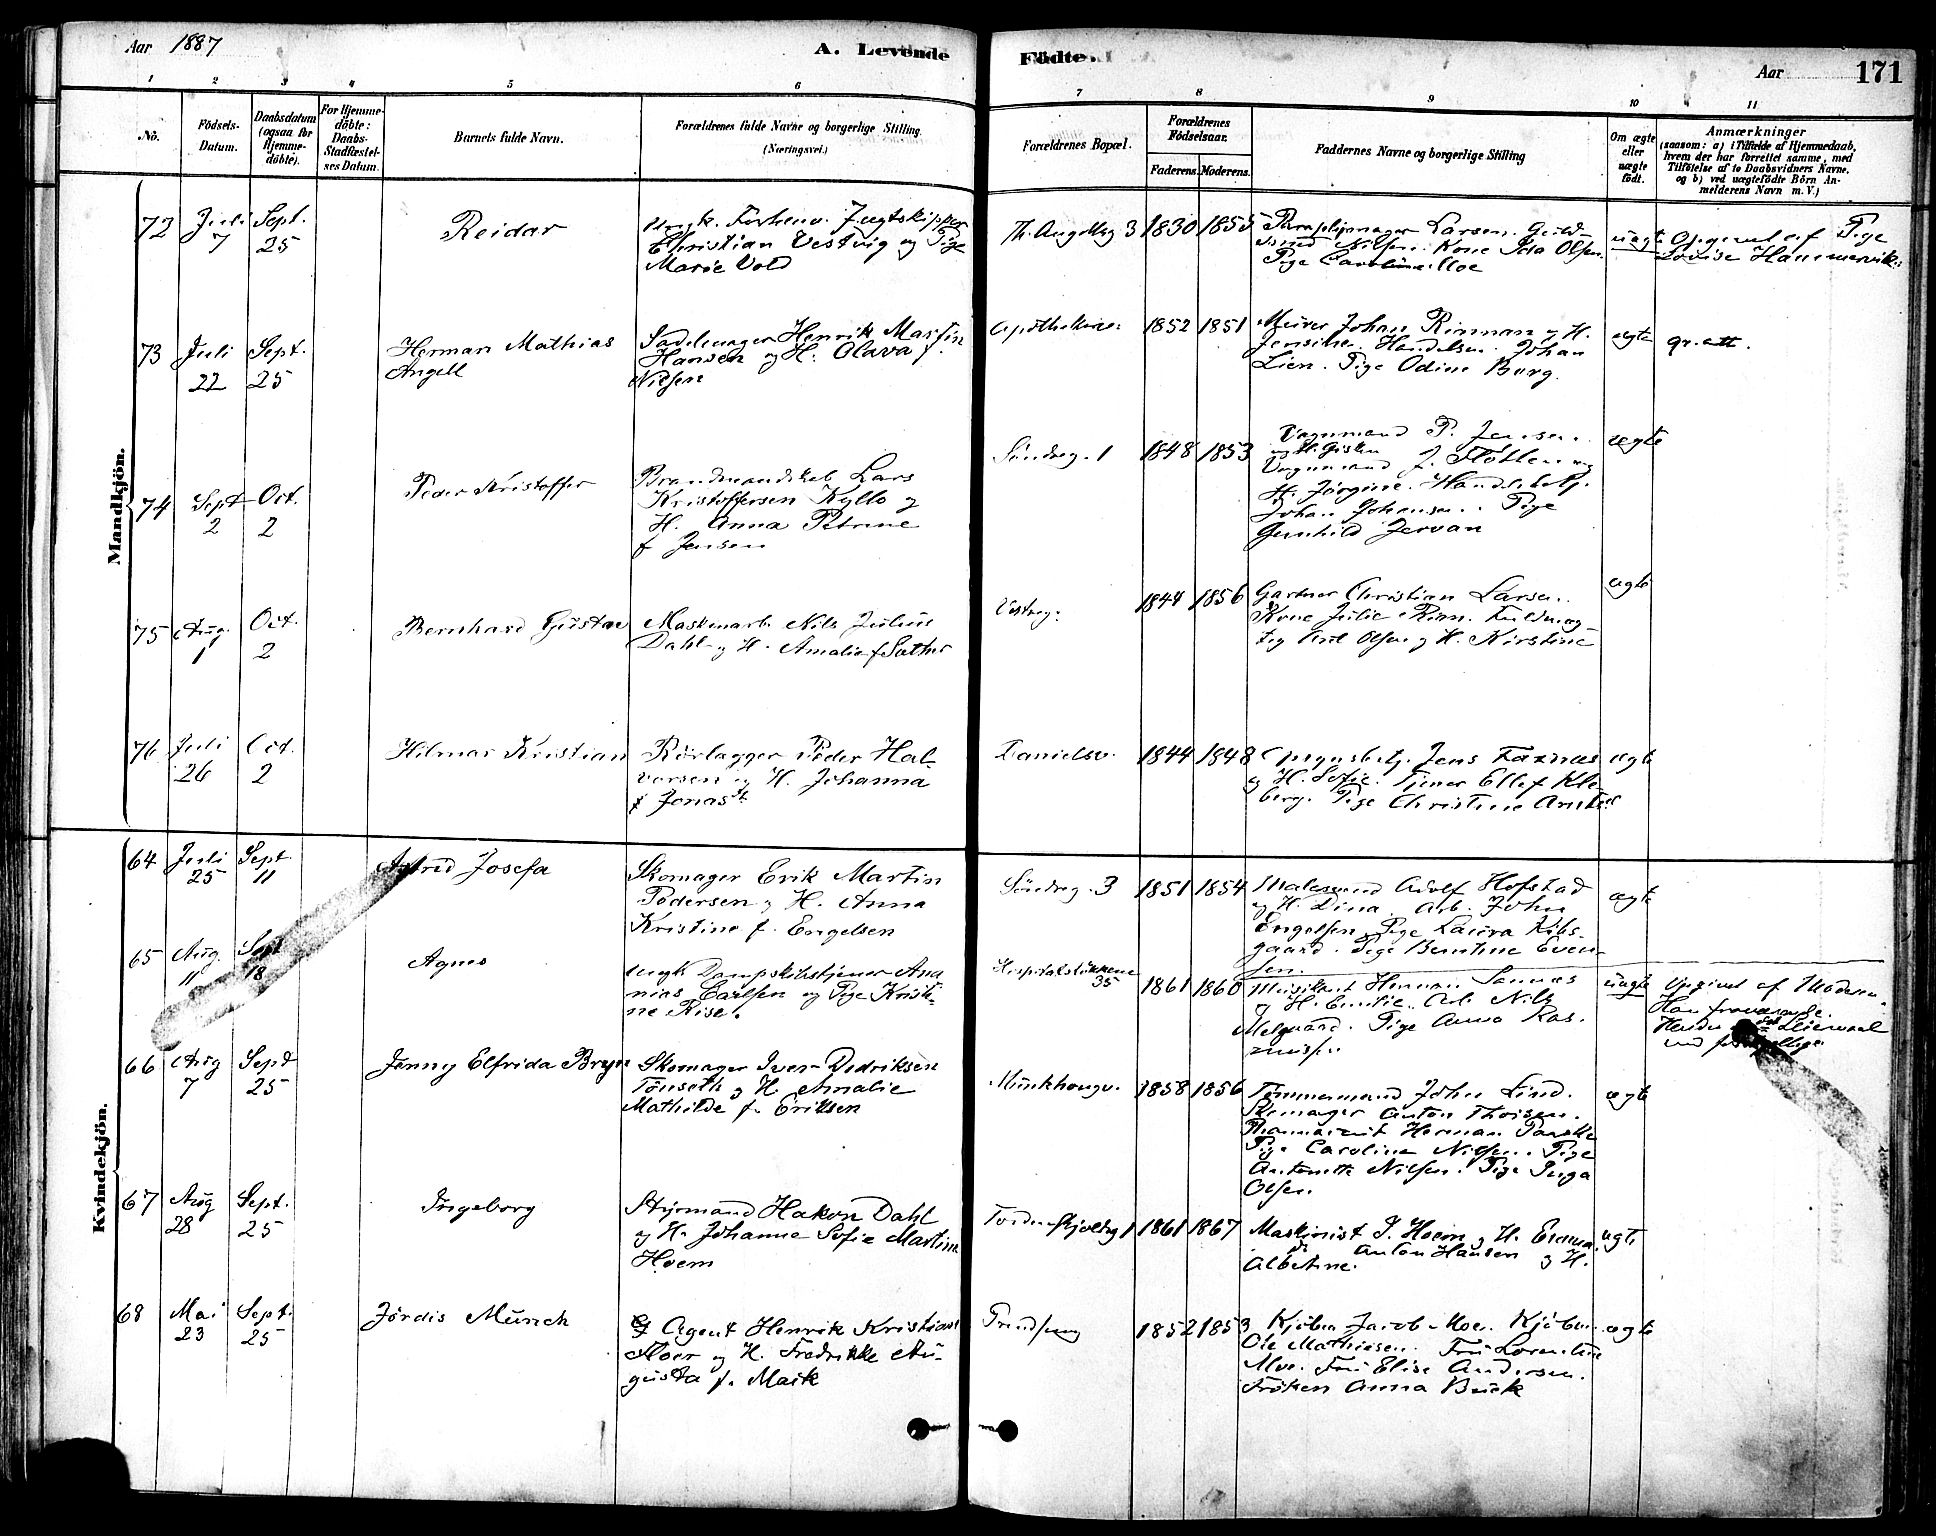 Aar 1887
A. Levende
Födte.
Aar
171
1 2 3 4 5 6 7 8 9 10 11
No.
Födsels-
Datum.
Daabsdatum
(ogsaa for
Hjemme-
döbte).
For Hjemme-
döbte:
Daabs-
Stadfæstel-
ses Datum.
Barnets fulde Navn.
Forældrenes fulde Navne og borgerlige Stilling.
(Næringsvei.)
Forældrenes Bopæl.
Forældrenes
Födselsaar.
Faderens. Moderens.
Faddernes Navne og borgerlige Stilling
Om ægte
eller
uægte
födt.
Anmærkninger
(saasom: a) i Tilfælde af Hjemmedaab,
hvem der har forrettet samme, med
Tilföielse af to Daabsvidners Navne.
og b) ved uægtefödte Börn An-
melderens Navn m. V.)
Mandkjön.
72
Juli
7
Sept.
25
Reidar
Ungk. Forhenv. Jagtskipper
Christian Vestvig og Pige
Marie Vold
Th. Angellsg 3
1830
1855
Paraplymager Larsen. Guld-
smed Nilsen. Kone Ida Olsen.
Pige Caroline Moe
uægte
Opgivet af Pige
Lovise Hammervik.
73
Juli
22
Sept.
25
Herman Mathias
Angell
Sadelmager Henrik Martin
Hansen og H. Olava f.
Nilsen
1852
1851
Murer Johan Rinnan og H.
Jensine. Handelsm. Johan
Lien. Pige Odine Borg.
ægte
74
Sept
2
Oct.
2
Peder Kristoffer
Brandmandskab Lars
Kristoffersen Kyllo og
H. Anna Petrine
f Jensen
Söndreg. 1
1848
1853
Vognmand P. Jensen.
og H. Gisken
Vognmand J. Flötten og
H. Jörgine. Handelsbetj.
Johan Johansen. Pige
Gunhild Jervan
ægte
75
Aug.
1
Oct.
2
Bernhard Gustav
Maskinarb. Nils Julius
Dahl og H. Amalie f Sather
Vestreg.
1844
1856
Gartner Christian Larsen.
Kone Julie Rian. Fuldmæg-
tig Olsen og H. Kirstine
ægte
76
Juli
26
Oct.
2
Hilmar Kristian
Rörlægger Peder Hal-
vorsen og H. Johanna
f Jonas dt
Danielsv.
1844
1848
Jens Faxnæs
og H. Sofie. Tjener Ellef Kle-
berg. Pige Christine
ægte
Kvindekjön.
64
Juli
25
Sept
11
Astrid Josefa
Skomager Erik Martin
Pedersen og H. Anna
Kristine f. Engelsen
Söndreg. 3
1851
1854
Malersvend Adolf Hofstad
og H. Dina. Arb. John
Engelsen. Pige Laura Kibs-
gaard. Pige Berntine Even-
sen.
ægte
65
Aug
11
Sept
18
Agnes
Ungk Dampskibstjener Ana-
nias Carlsen og Pige Kristi-
ne Rise.
Hospitalslökkene
35
1861
1860
Musikant Herman Sannæs
og H. Emilie. Arb. Nils
Melgaard. Pige Anna Ras-
mussen
uægte
Opgivet af Moderen.
Han fraværende.
66
Aug
7
Sept
25
Jenny Elfrida Bryn
Skomager Iver Didriksen
Tönseth og H. Amalie
Mathilde f. Eriksen
Munkhaugv.
1858
1856
Tömmermand John Lind.
Skomager Anton Thoisen.
Herman Panske
Pige Caroline Nilsen. Pige
Antonette Nilsen. Pige Inga
Olsen.
ægte
67
Aug
28
Sept.
25
Ingeborg
Styrmand Hakon Dahl
og H. Johanne Sofie Martine
Hoem
Tordenskjoldsg 1
1861
1867
Maskinist J. Hoem og H. Emma.
do Anton Hansen og H.
Albertine.
ægte
68
Mai
23
Sept.
25
Jördis Münch
Agent Henrik Kristian
Floer og H. Fredrikke Au-
gusta f. Maik
1852
1853
Kjöbm Jacob Moe. Kjöbm
Ole Mathiesen. Fru Lorentine
Moe. Fru Elise Andersen.
Fröken Anna Buck
ægte